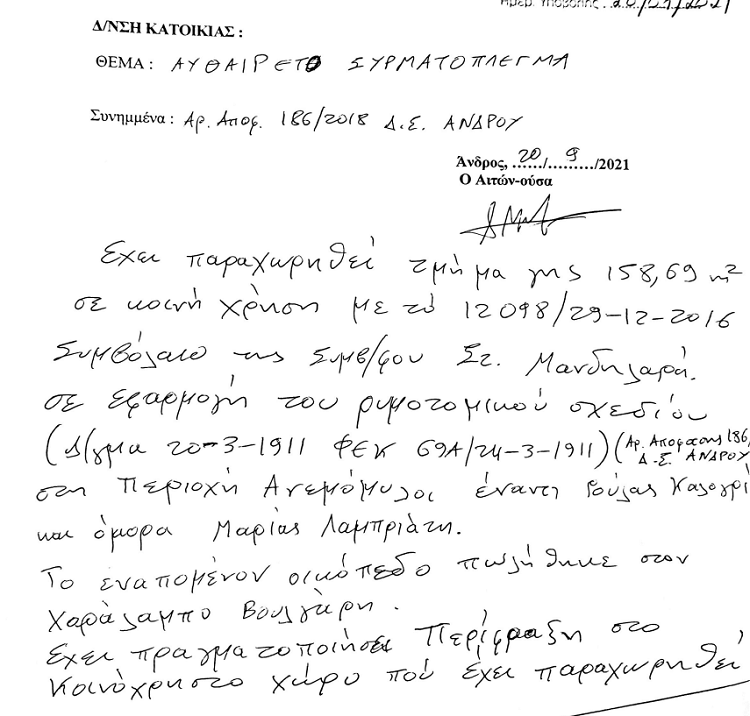 Δ/ΝΣΗ ΚΑΤΟΙΚΙΑΣ :
ΘΕΜΑ : ΑΥΘΑΙΡΕΤΟ ΣΥΡΜΑΤΟΠΛΕΓΜΑ
Συνημμένα : Αρ. Αποφ. 186/2018 Δ.Σ. ΑΝΔΡΟΥ
Άνδρος, 20/9/2021
Ο Αιτών-ούσα
Εχει παραχωρηθεί τμήμα γης 158,69 m²
σε κοινή χρήση με το 12098/29-12-2016
Συμβόλαιο της Συμβ/φου Στ. Μανδηλαρά.
σε εφαρμογή του ρυμοτομικού σχεδίου
(Δ/γμα 20-3-1911 ΦΕΚ 69Α/24-3-1911) (Αρ. Αποφασης 186,
Δ.Σ. ΑΝΔΡΟΥ
στη Περιοχή Ανεμόμυλοι έναντι Ρούλας Καλογρι
και όμορα Μαρίας Λαμπριάτη.
Το εναπομένον οικόπεδο πωλήθηκε στον
Χαράλαμπο Βουλγάρη.
Εχει πραγματοποιήσει Περίφραξη στο
Κοινόχρηστο χώρο πού έχει παραχωρηθεί